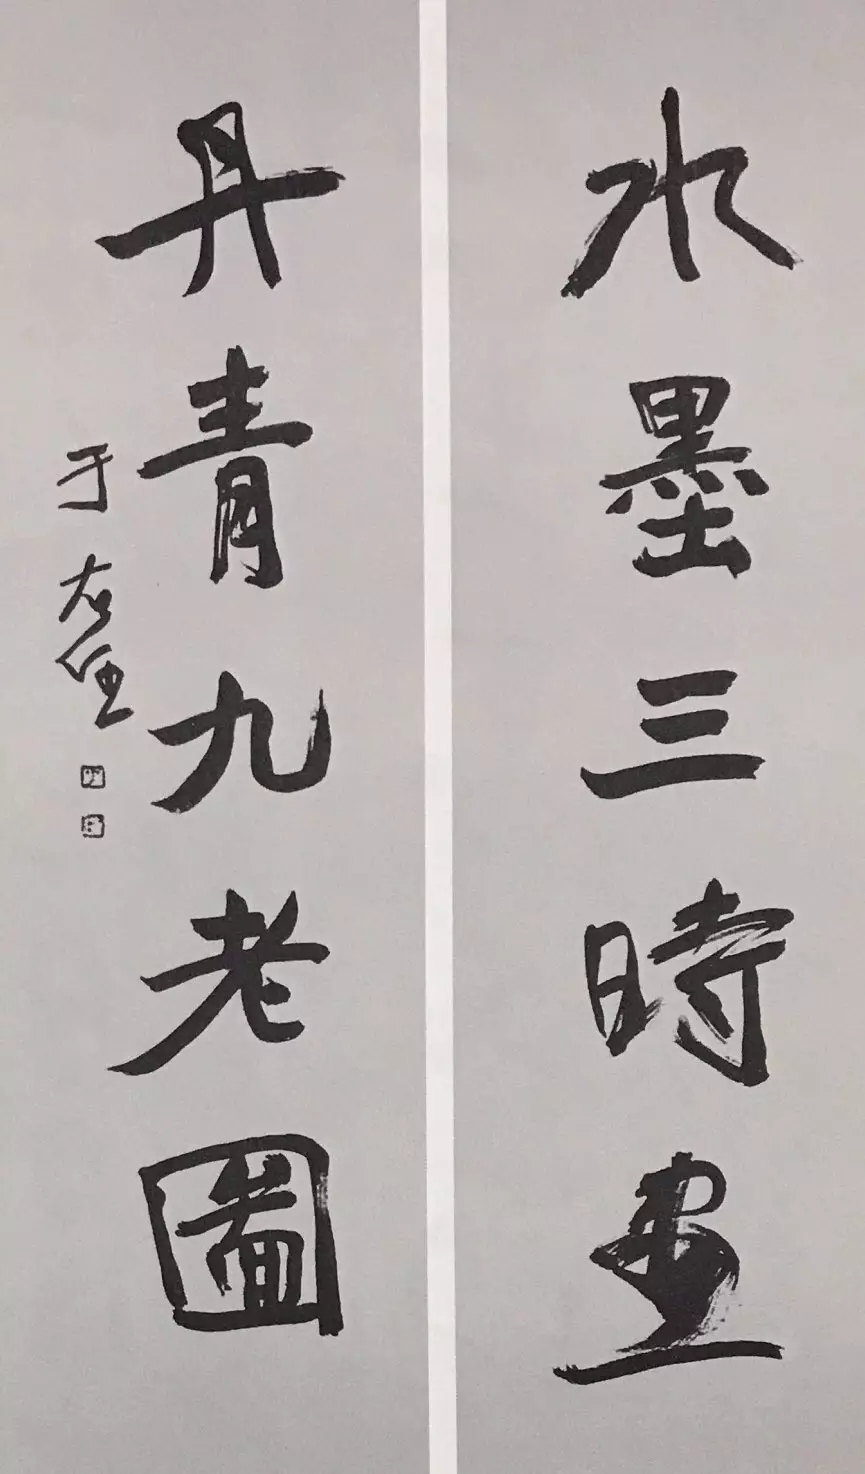 水墨三時畫
丹青九老圖
于右任